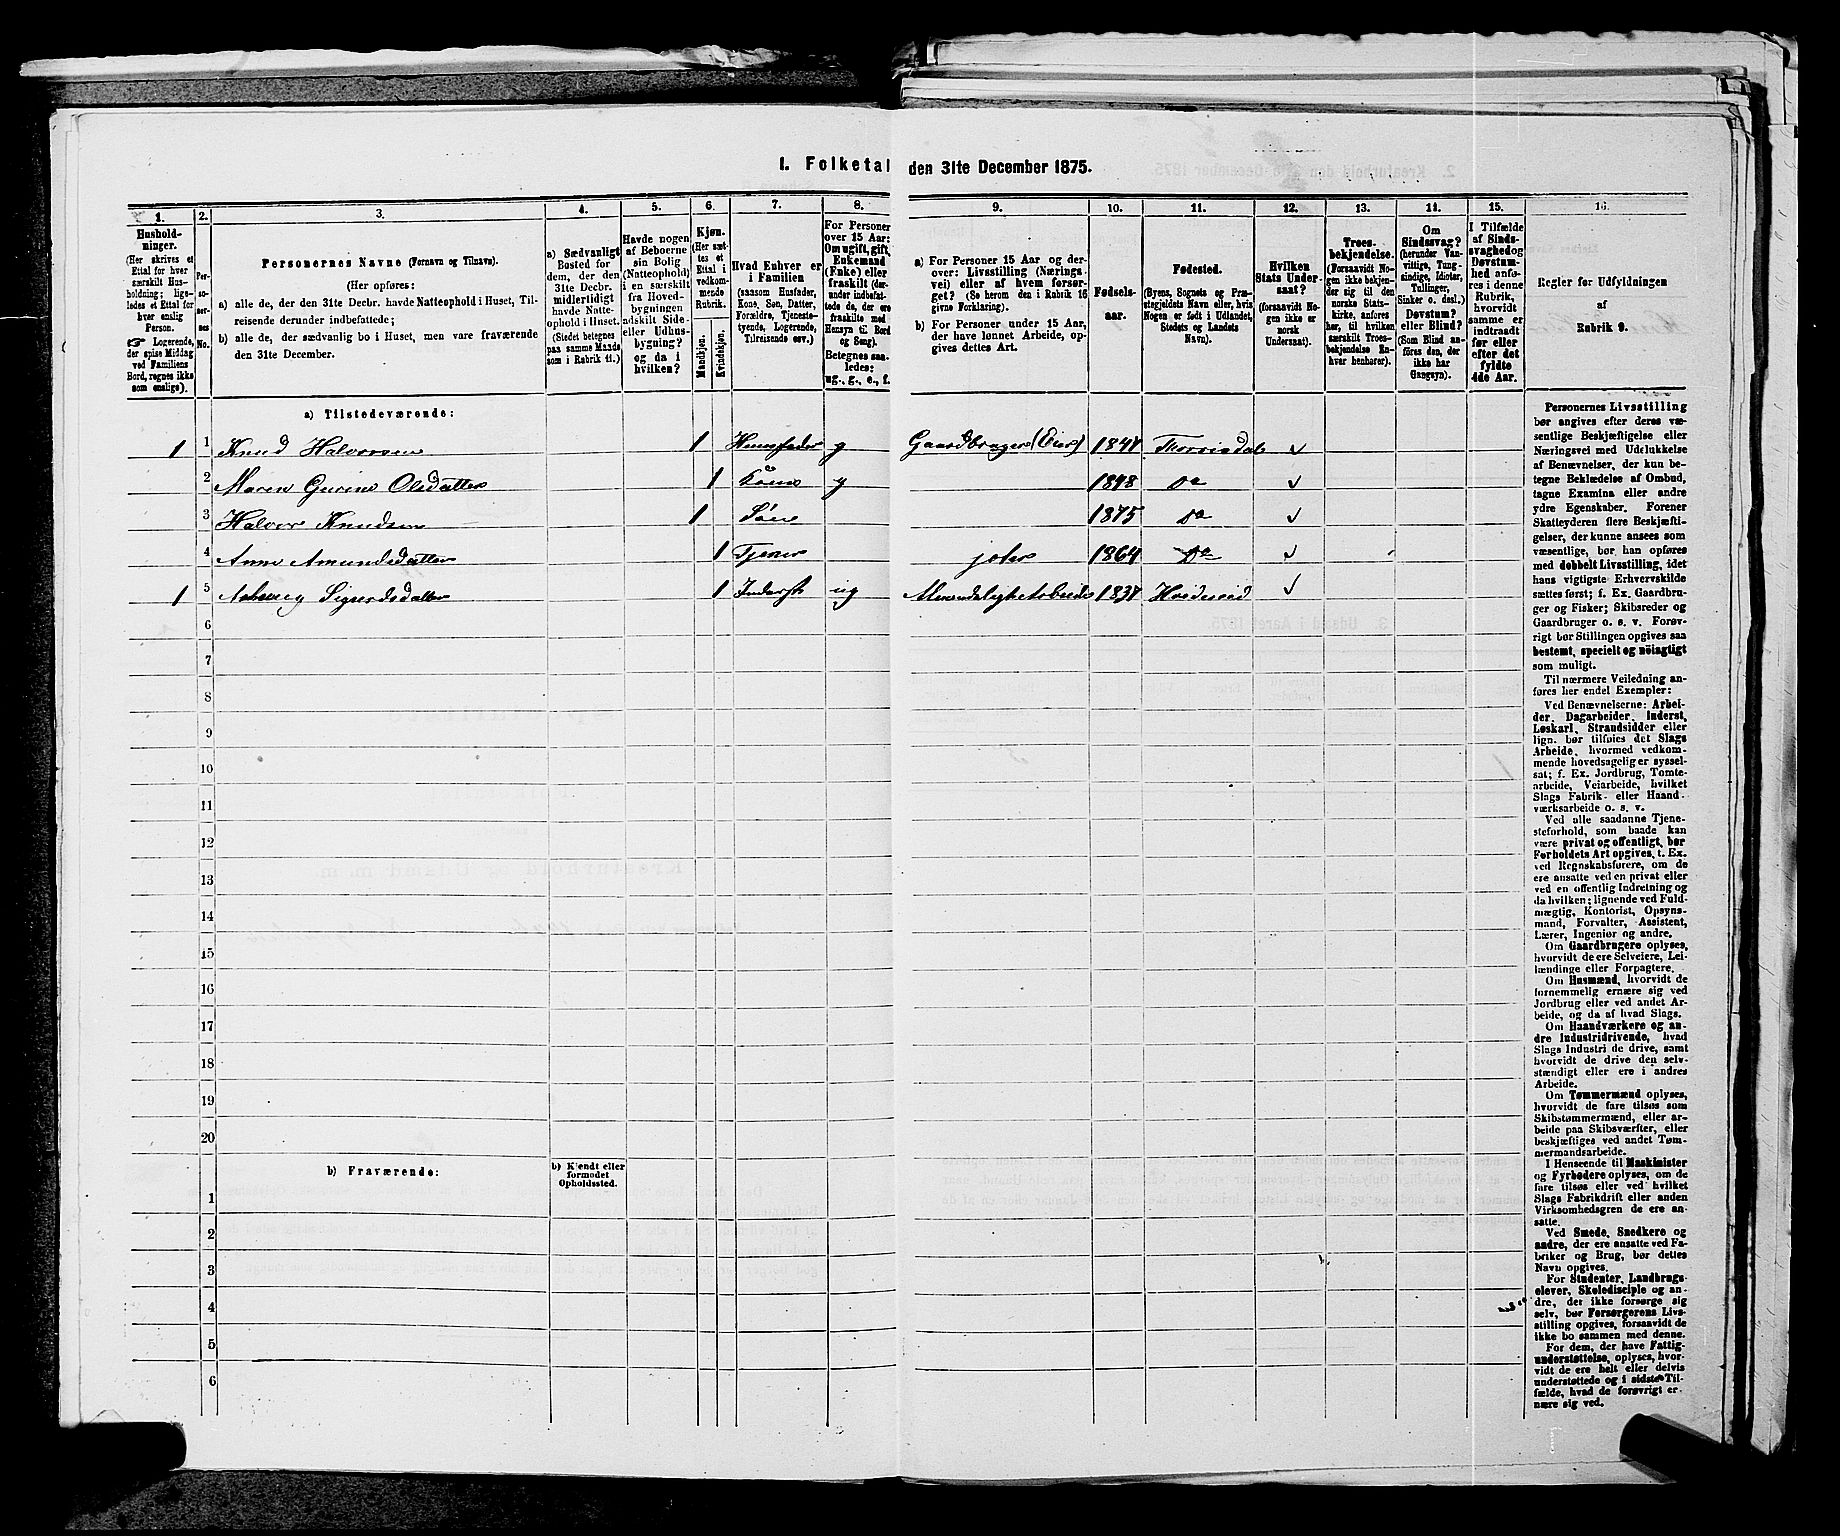 I. Folketal den 31te December 1875.
1. 2. 3. 4. 5. 6. 7. 8. 9. 10. 11. 12. 13. 14. 15. 16.
Hushold-
ninger.
(Her skrives et
Ettal for hver
særskilt Hus-
holdning; lige-
ledes et Ettal for
hver enslig
Person.
☞ Logerende,
der spise Middag
ved Familiens
Bord, regnes ikke
som enslige).
Per-
so-
ner-
nes
No.
Personernes Navne (Fornavn og Tilnavn).
(Her opføres:
a) alle de, der den 31te Decbr. havde Natteophold i Huset, Til-
reisende derunder indbefattede;
b) alle de, der sædvanlig bo i Huset, men vare fraværende
den 31te December.
a) Sædvanligt
Bosted for
dem, der den
31te Decbr.
midlertidigt
havde Natte-
ophold i Huset.
(Stedet betegnes
paa samme Maade
som i Rubrik 11.)
Havde nogen
af Beboerne
sin Bolig
(Natteophold)
i en særskilt
fra Hoved-
bygningen
adskilt Side-
eller Udhus-
bygning?
og da i
hvilken?
Kjøn.
(Her sæt-
tes et
Ettal i
vedkom-
mende
Rubrik.
Mandkjøn.
Kvindekjøn.
Hvad Enhver er
i Familien
(saasom Husfader,
Kone, Søn, Datter,
Forældre, Tjeneste-
tyende, Logerende,
Tilreisende osv.)
For Personer
over 15 Aar:
Om ugift, gift,
Enkemand
(Enke) eller
fraskilt (der-
under indbefat-
tede de, der ere
fraskilte med
Hensyn til Bord
og Seng).
Betegnes saa-
ledes:
ug., g., e., f.
a) For Personer 15 Aar og der-
over: Livsstilling (Nærings-
vei) eller af hvem forsør-
get? (Se herom den i Rubrik 16
givne Forklaring.)
b) For Personer under 15 Aar,
der have lønnet Arbeide, op-
gives dettes Art.
Fødsels-
aar.
Fødested.
(Byens, Sognets og Præ-
stegjeldets Navn eller, hvis
Nogen er født i Udlandet,
Stedets og Landets
Navn).
Hvilken
Stats Under-
saat?
(forsaavidt No-
gen ikke er
norsk
Undersaat).
Troes-
bekjendelse.
(Forsaavidt No-
gen ikke bekjen-
der sig til den
norske Stats-
kirke, anføres
her, til hvilken
særskilt Troes-
bekjendelse En-
hver henhører).
Om
Sindssvag?
(herunder Van-
vittige, Tung-
sindige, Idioter,
Tullinger,
Sinker o. desl.)
Døvstum?
eller Blind?
(Som Blind an-
føres den, der
ikke har
Gangsyn).
I Tilfælde
af Sinds-
svaghed og
Døvstum-
hed anfø-
res i denne
Rubrik,
hvorvidt
samme er
indtraadt
før eller
efter det
fyldte
4de Aar.
Regler for Udfyldningen
af
Rubrik 9.
a) Tilstedeværende:
1 1 Knud Halvorsen 1 Huusfader g Gaardbruger (Eier) 1847 Thorrisdal ✓
2 Maren Gurine Olsdatter 1 Kone g 1848 Do ✓
3 Halvor Knudsen 1 Søn 1875 Do ✓
4 Anne Amundsdatter 1 Tjener 1864 Do ✓
1 5 Sigurdsdatter 1 Inderst ug Almindelight Arbeide 1837 Hvideseid ✓
6
7
8
9
10
11
12
13
14
15
16
17
18
19
20
b) Fraværende:
b) Kjendt eller
formodet
Opholdssted.
1
2
3
4
5
6
Personernes Livsstilling
bør angives efter deres væ-
sentlige Beskjæftigelse eller
Næringsvei med Udelukkelse
af Benævnelser, der kun be-
tegne Beklædelse af Ombud,
tagne Examina eller andre
ydre Egenskaber. Forener
Skatteyderen flere Beskjæfti-
gelser, der kunne ansees som
væsentlige, bør han opføres
med dobbelt Livsstilling, idet
hans vigtigste Erhvervskilde
sættes først; f. Ex. Gaardbru-
ger og Fisker; Skibsreder og
Gaardbruger o. s. v. Forøv-
rigt bør Stillingen opgives saa
bestemt, specielt og nöiagtigt
som muligt.
Til nærmere Veiledning an-
føres her endel Exempler:
Ved Benævnelserne: Arbei-
der, Dagarbeider, Inderst,
Løskarl, Strandsidder eller
lign. bør tilføies det Slags
Arbeide, hvormed vedkom-
mende hovedsagelig er syssel-
sat; f. Ex. Jordbrug, Tomte-
arbeide, Veiarbeide, hvilket
Slags Fabrik- eller Haand-
værksarbeide o. s. v.
Ved alle saadanne Tjene-
steforhold, som baade kan
være privat og offentligt, bør
Forholdets Art opgives, t. Ex.
ved Regnskabsførere, om de
ere ansatte ved en privat eller
ved en offentlig Indretning og
da hvilken; lignende ved Fuld-
mægtig, Kontorist, Opsyns-
mand, Forvalter, Assistent,
Lærer, Ingeniør og andre.
Om Gaardbrugere oplyses,
hvorvidt de ere Selveiere, Lei-
lændinge eller Forpagtere.
Om Husmænd, hvorvidt de
fornemmelig ernære sig ved
Jordbrug eller ved andet Ar-
beide, og da af hvad Slags.
Om Haandværkere og an-
dre Industridrivende, hvad
Slags Industri de drive, samt
hvorvidt de drive den selv-
stændigt eller ere i andres
Arbeide.
Om Tømmermænd oplyses,
hvorvidt de fare tilsøs som
Skibstømmermænd, eller ar-
beide paa Skibsværfter, eller
beskjæftiges ved andet Tøm-
mermandsarbeide.
I Henseende til Maskinister
og Fyrbødere oplyses, om de
fare tilsøs eller ved hvilket
Slags Fabrikdrift eller anden
Virksomhedsgren de ere an-
satte.
Ved Smede, Snedkere og
andre, der ere ansatte ved Fa-
briker og Brug, bør dettes
Navn opgives.
For Studenter, Landbrugs-
elever, Skoledisciple og an-
dre, der ikke forsørge sig
selv, bør Forsørgerens Livs-
stilling opgives, forsaavidt de
ikke bo sammen med denne.
For dem, der have Fattig-
understøttelse, oplyses, hvor-
vidt de ere helt eller delvis
understøttede og i sidste Til-
fælde, hvad de forøvrigt er-
nære sig ved.